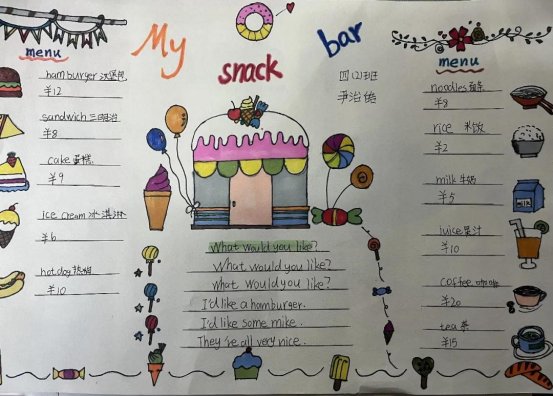 My
snack
bar
menu
hamburger 汉堡包
¥12
sandwich 三明治
¥8
cake 蛋糕
¥9
ice cream 冰淇淋
¥6
hot dog 热狗
¥10
四(2)班
What would you like?
What would you like?
what would you like?
I'd like a hamburger.
I'd like some mike.
They're all very nice.
menu
noodles 面条
¥8
rice 米饭
¥2
milk 牛奶
¥5
juice 果汁
¥10
coffee 咖啡
¥20
tea 茶
¥15